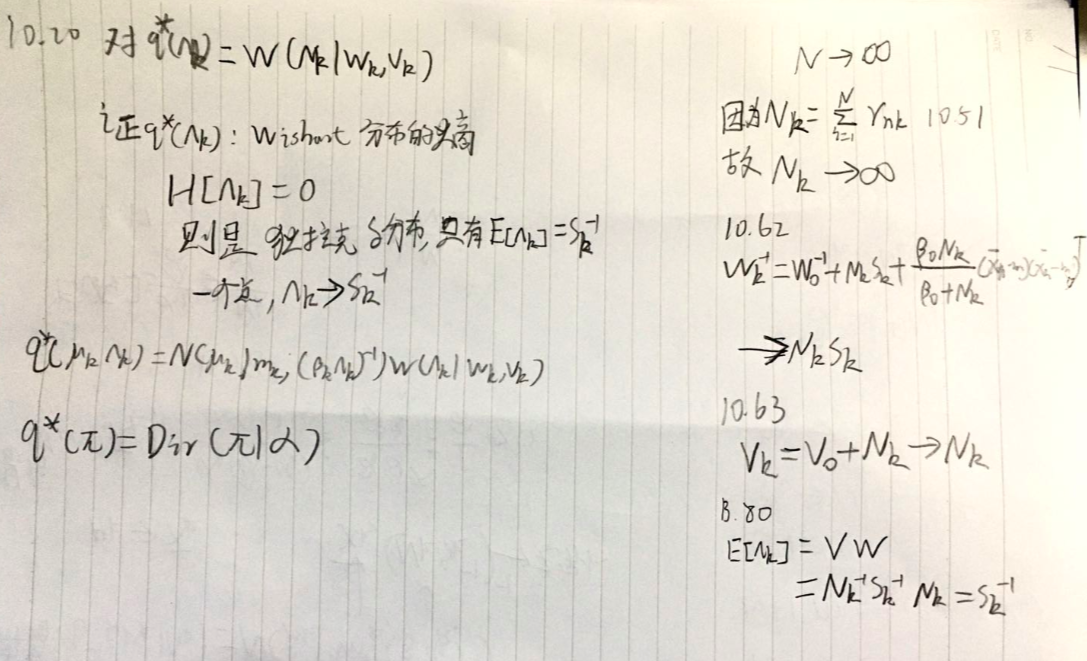 10.20 对 q*(Λk) = W(Λk|Wk,Vk)
证q*(Λk): Wishart 分布的熵
H[Λk] = 0
则是 狄拉克δ分布, 只有E[Λk] = Sk⁻¹
一个点, Λk → Sk⁻¹
q*(μk Λk) = N(μk|mk, (βkΛk)⁻¹) W(Λk|Wk,Vk)
q*(π) = Dir(π|α)
N → ∞
因为Nk = Σ_{n=1}^{N} rnk 10.51
故 Nk → ∞
10.62
Wk⁻¹ = W0⁻¹ + NkSk + β0Nk/(β0+Nk) (x̄k-m0)(x̄k-m0)ᵀ
→ NkSk
10.63
Vk = V0 + Nk → Nk
B.80
E[Λk] = VW
= Nk⁻¹Sk⁻¹ Nk = Sk⁻¹